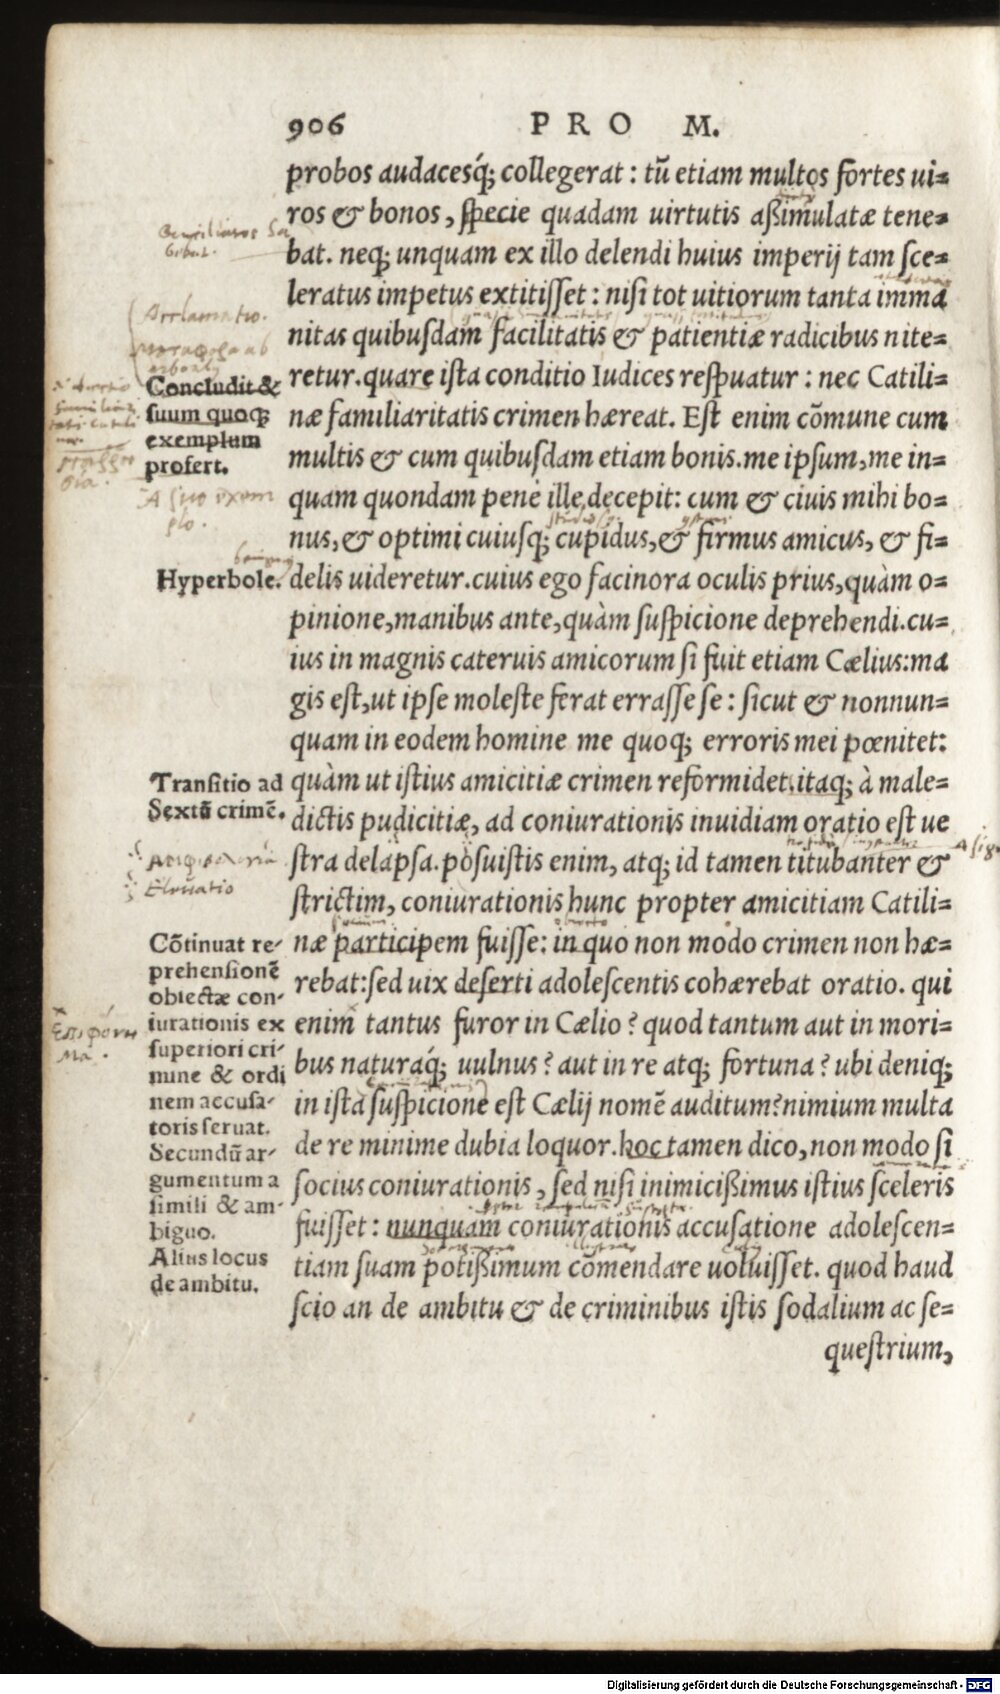 906 PRO M.
probos audacesq́; collegerat : tū etiam multos fortes ui=
ros & bonos, specie quadam uirtutis aßimulatæ tene=
bat. neq; unquam ex illo delendi huius imperij tam sce=
leratus impetus extitisset : nisi tot uitiorum tanta imma
nitas quibusdam facilitatis & patientiæ radicibus nite=
retur. quare ista conditio Iudices respuatur : nec Catili=
næ familiaritatis crimen hæreat. Est enim cōmune cum
multis & cum quibusdam etiam bonis. me ipsum, me in=
quam quondam penè ille decepit: cum & ciuis mihi bo=
nus, & optimi cuiusq; cupidus, & firmus amicus, & fi=
delis uideretur. cuius ego facinora oculis prius, quàm o=
pinione, manibus ante, quàm suspicione deprehendi. cu=
ius in magnis cateruis amicorum si fuit etiam Cælius: ma
gis est, ut ipse moleste ferat errasse se : sicut & nonnun=
quam in eodem homine me quoq; erroris mei pœnitet:
quàm ut istius amicitiæ crimen reformidet. itaq; à male=
dictis pudicitiæ, ad coniurationis inuidiam oratio est ue
stra delapsa. posuistis enim, atq; id tamen titubanter &
strictim, coniurationis hunc propter amicitiam Catili=
næ participem fuisse: in quo non modo crimen non hæ=
rebat: sed uix deserti adolescentis cohærebat oratio. qui
enim tantus furor in Cælio? quod tantum aut in mori=
bus naturaq́; uulnus? aut in re atq; fortuna? ubi deniq;
in ista suspicione est Cælij nomē auditum? nimium multa
de re minime dubia loquor. hoc tamen dico, non modo si
socius coniurationis, sed nisi inimicißimus istius sceleris
fuisset : nunquam coniurationis accusatione adolescen=
tiam suam potißimum cōmendare uoluisset. quod haud
scio an de ambitu & de criminibus istis sodalium ac se=
questrium,
Acclamatio.
Concludit &
suum quoq;
exemplum
profert.
A suo exem
plo.
Hyperbole.
Transitio ad
Sextū crimē.
Eleuatio
Cōtinuat re-
prehensionē
obiectæ con-
iurationis ex
superiori cri-
mine & ordi
nem accusa-
toris seruat.
Secundū ar-
gumentum a
simili & am-
biguo.
Alius locus
de ambitu.
Digitalisierung gefördert durch die Deutsche Forschungsgemeinschaft - DFG